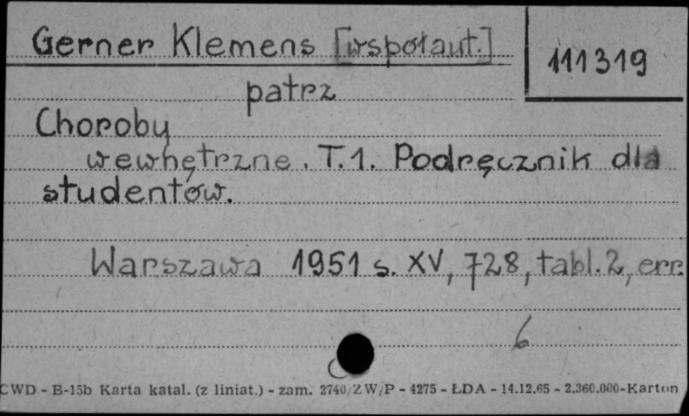 Gerner Klemens [współaut.]
111319
patrz
Choroby
wewnętrzne. T.1. Podręcznik dla
studentów.
Warszawa 1951 s. XV, 728, tabl. 2, err.
6
CWD - B-15b Karta katal. (z liniat.) - zam. 2740/ZW/P - 4275 - ŁDA - 14.12.65 - 2.360.000 - Karton